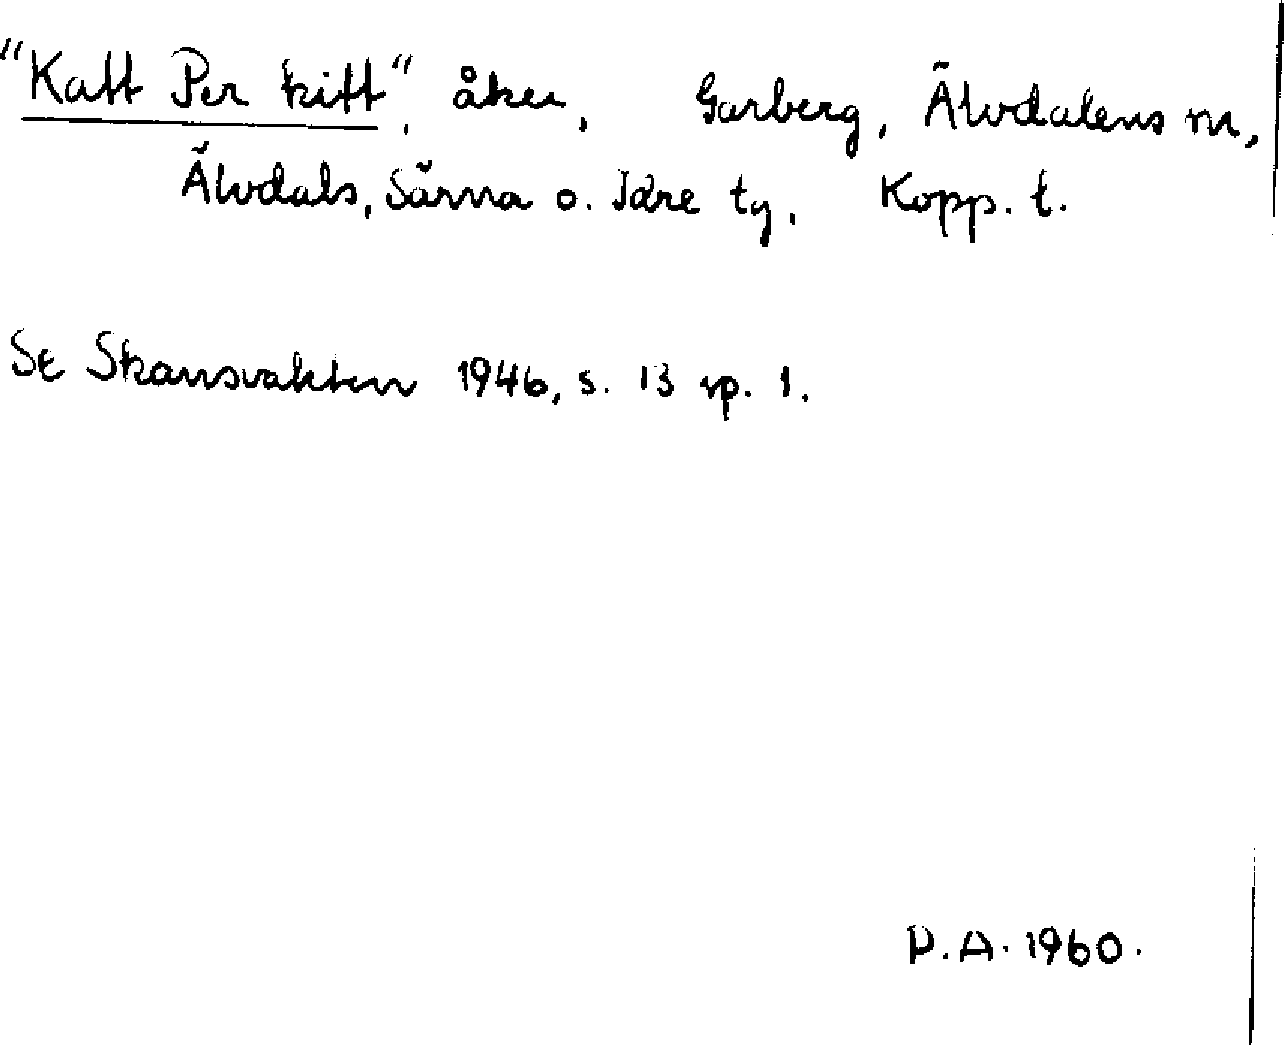 "Katt Per kitt", åker, Garberg, Älvdalens sn,
Älvdals, Särna o. Idre tg, Kopp. l.
Se Skansvakten 1946, s. 13 sp. 1.
D.A. 1960.